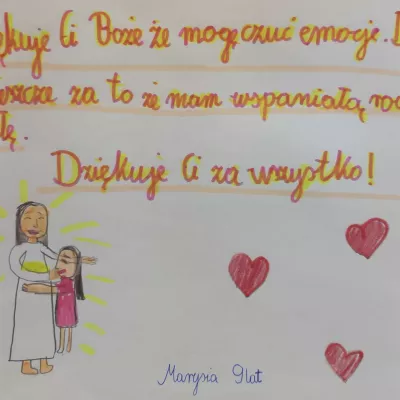 ękuje Ci Boże że mogę czuć emocje.
eszcze za to że mam wspaniałą ro
ę.
Dziękuje Ci za wszystko!
Marysia 9lat